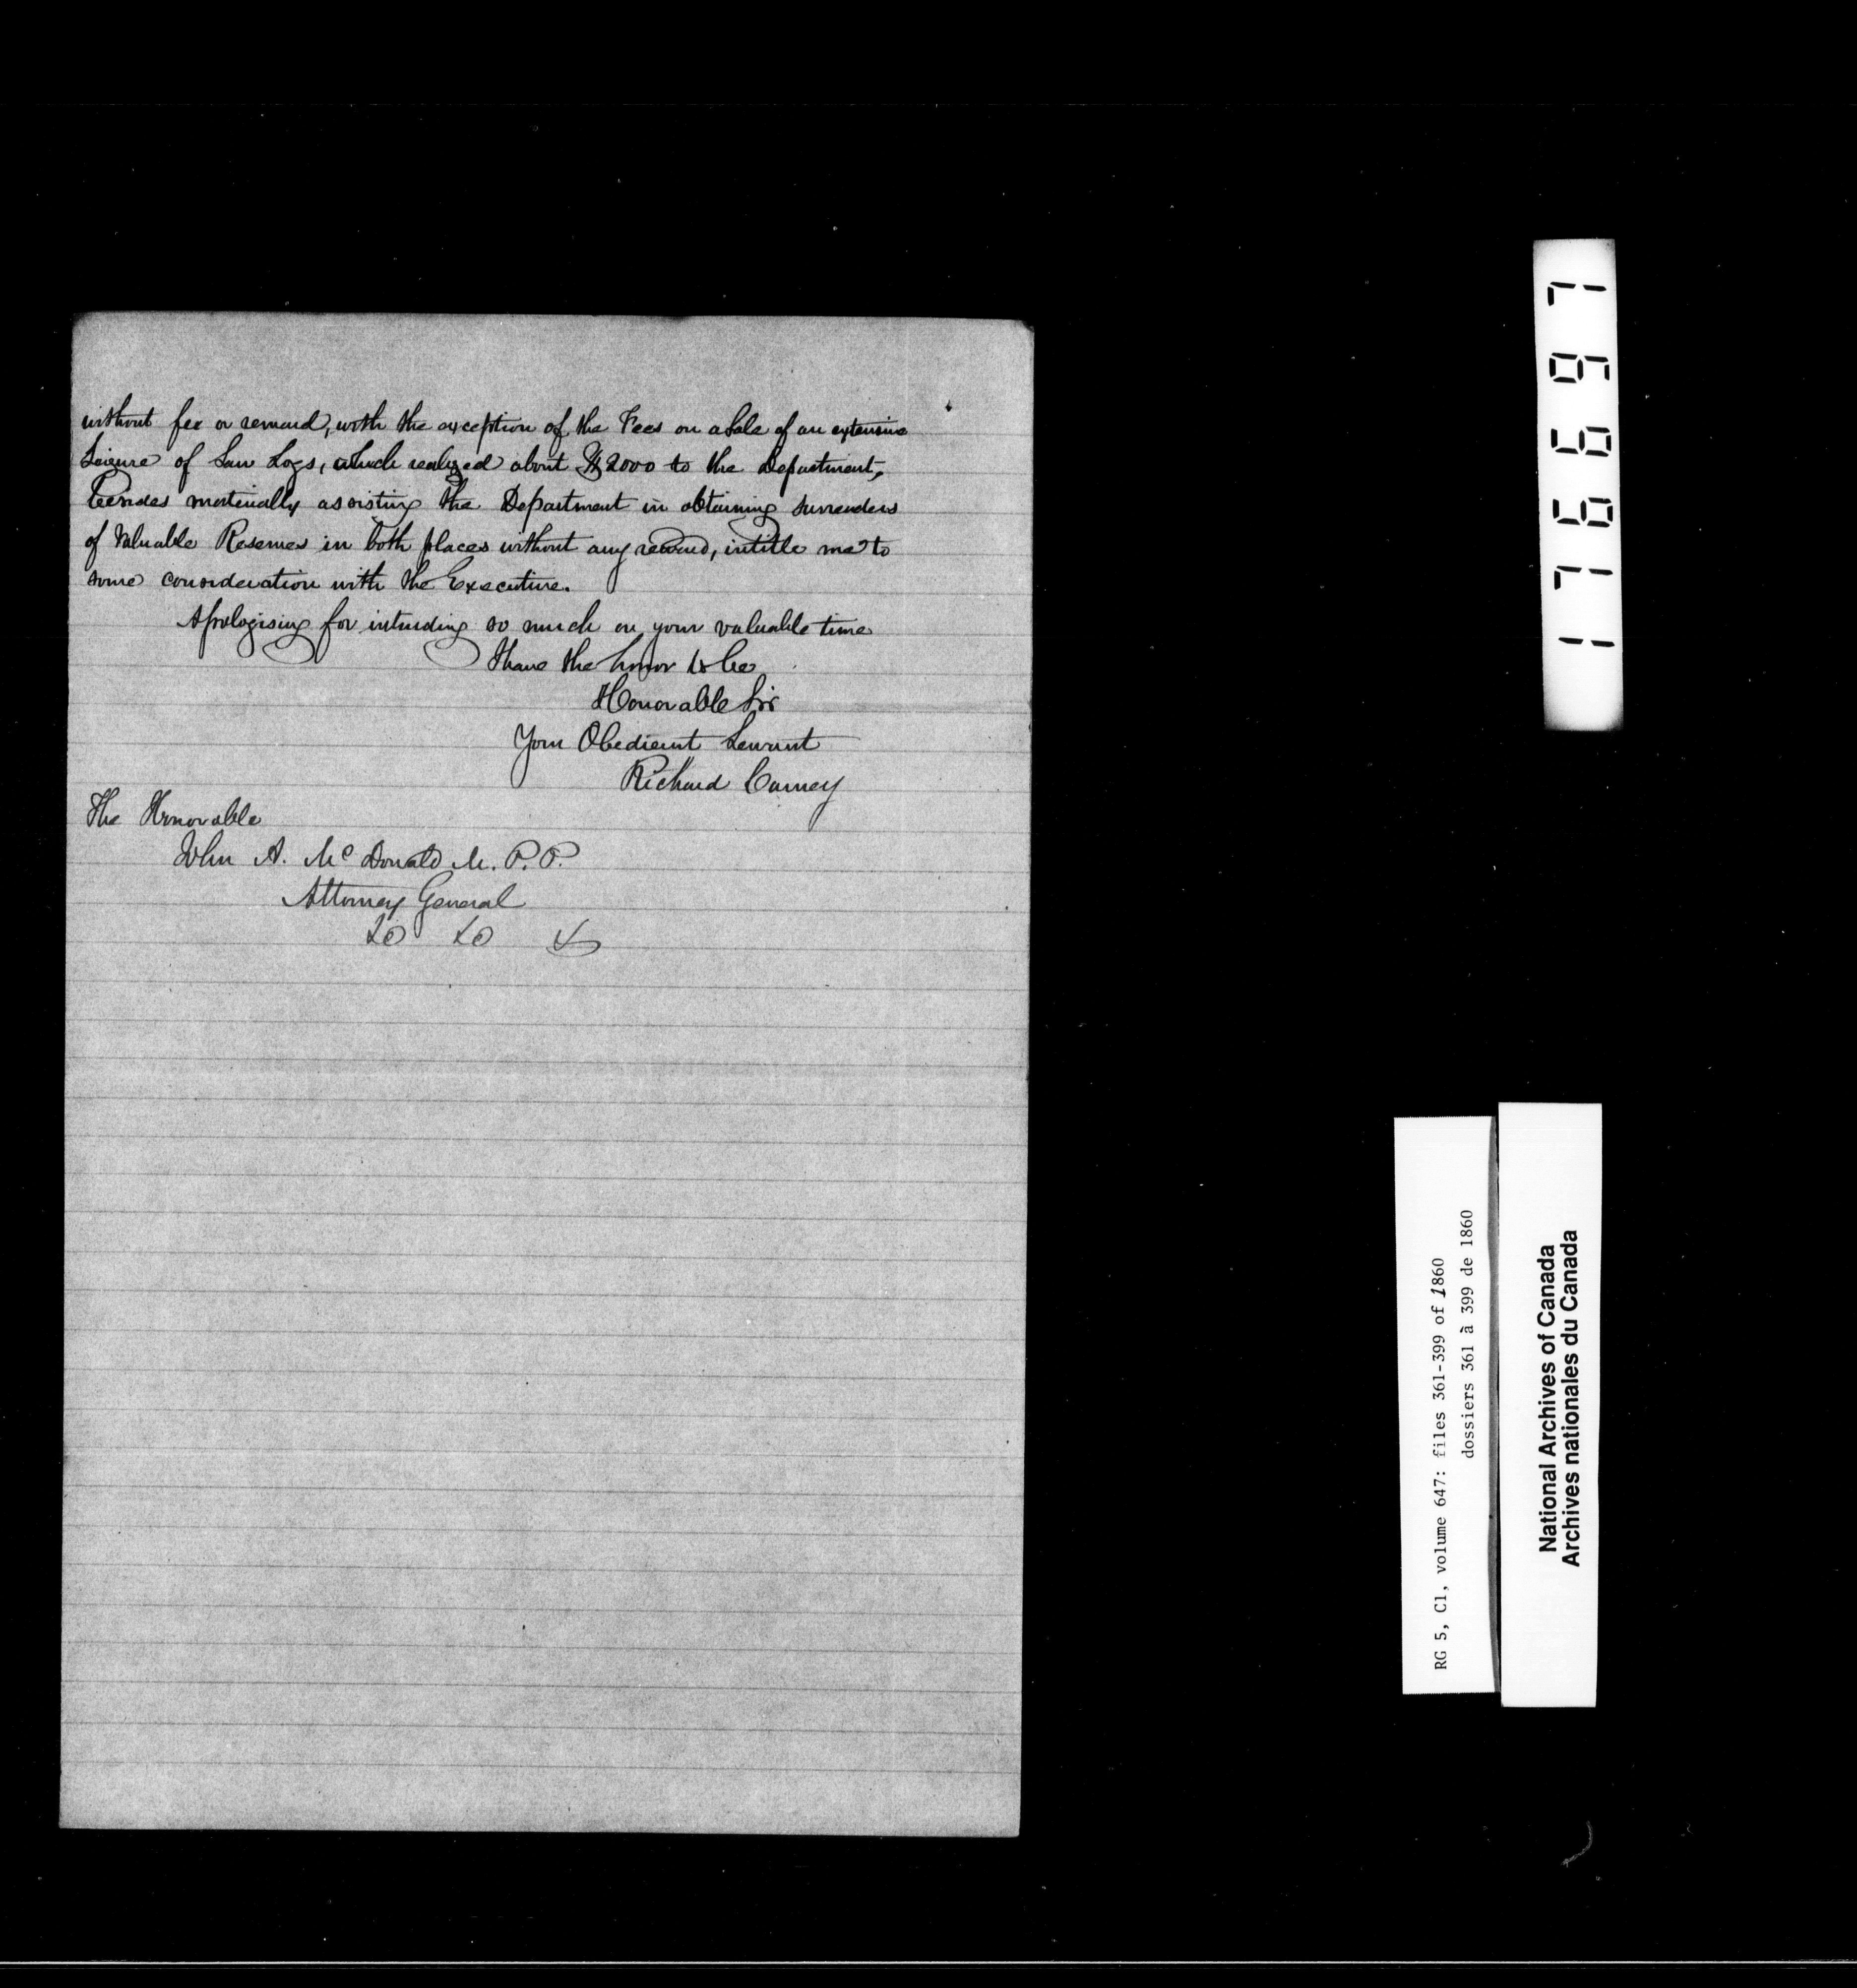 without fee or reward, with the exception of the Fees on a Sale of an extensive
Seizure of Saw Logs, which realized about $2000 to the Department,
besides materially assisting the Department in obtaining surrenders
of Valuable Reserves in both places without any reward, intitle me to
some consideration with the Executive.
Apologising for intruding so much on your valuable time
I have the honor to be
Honorable Sir
Your Obedient Servant
Richard Carney
The Honorable
John A. McDonald M. P. P.
Attorney General
176697
RG 5, C1, volume 647: files 361-399 of 1860
dossiers 361 à 399 de 1860
National Archives of Canada
Archives nationales du Canada